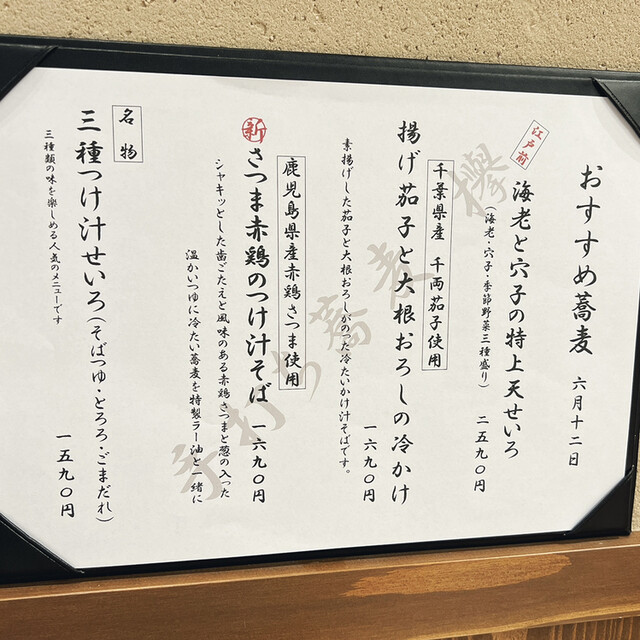 おすすめ蕎麦 六月十二日
江戸前
海老と穴子の特上天せいろ
(海老・穴子・季節野菜三種盛り) 二五九〇円
千葉県産 千両茄子使用
揚げ茄子と大根おろしの冷かけ
素揚げした茄子と大根おろしがのった冷たいかけ汁そばです。 一六九〇円
鹿児島県産赤鶏さつま使用
新 さつま赤鶏のつけ汁そば 一六九〇円
シャキッとした歯ごたえと風味のある赤鶏さつまと葱の入った
温かいつゆに冷たい蕎麦を特製ラー油と一緒に
名物
三種つけ汁せいろ(そばつゆ・とろろ・ごまだれ)
三種類の味を楽しめる人気のメニューです 一五九〇円
手打ち蕎麦 欅